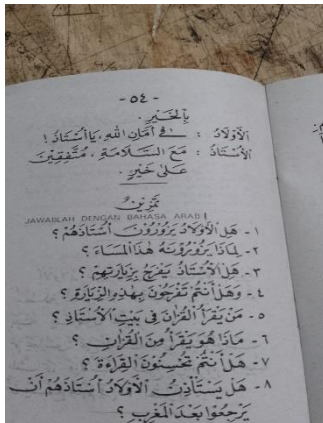 - ٥٤ -
بِالْخَيْرِ .
اَلْأَوْلَادُ : فِي أَمَانِ اللهِ، يَا أُسْتَاذُ !
اَلْأُسْتَاذُ : مَعَ السَّلَامَةِ ، مُتَّفِقِينَ
عَلَى خَيْرٍ .
تَمْرِيْنٌ
JAWABLAH DENGAN BAHASA ARAB !
١ - هَلِ الْأَوْلَادُ يَزُوْرُوْنَ أُسْتَاذَهُمْ ؟
٢ - لِمَاذَا يَزُوْرُوْنَهُ هٰذَا الْمَسَاءَ ؟
٣ - هَلِ الْأُسْتَاذُ يَفْرَحُ بِزِيَارَتِهِمْ ؟
٤ - وَهَلْ أَنْتُمْ تَفْرَحُوْنَ بِهٰذِهِ الزِّيَارَةِ ؟
٥ - مَنْ يَقْرَأُ الْقُرْآنَ فِى بَيْتِ الْأُسْتَاذِ ؟
٦ - مَاذَا هُوَ يَقْرَأُ مِنَ الْقُرْآنِ ؟
٧ - هَلْ أَنْتُمْ تُحْسِنُوْنَ الْقِرَاءَةَ ؟
٨ - هَلْ يَسْتَأْذِنُ الْأَوْلَادُ أُسْتَاذَهُمْ أَنْ
يَرْجِعُوْا بَعْدَ الْمَغْرِبِ ؟